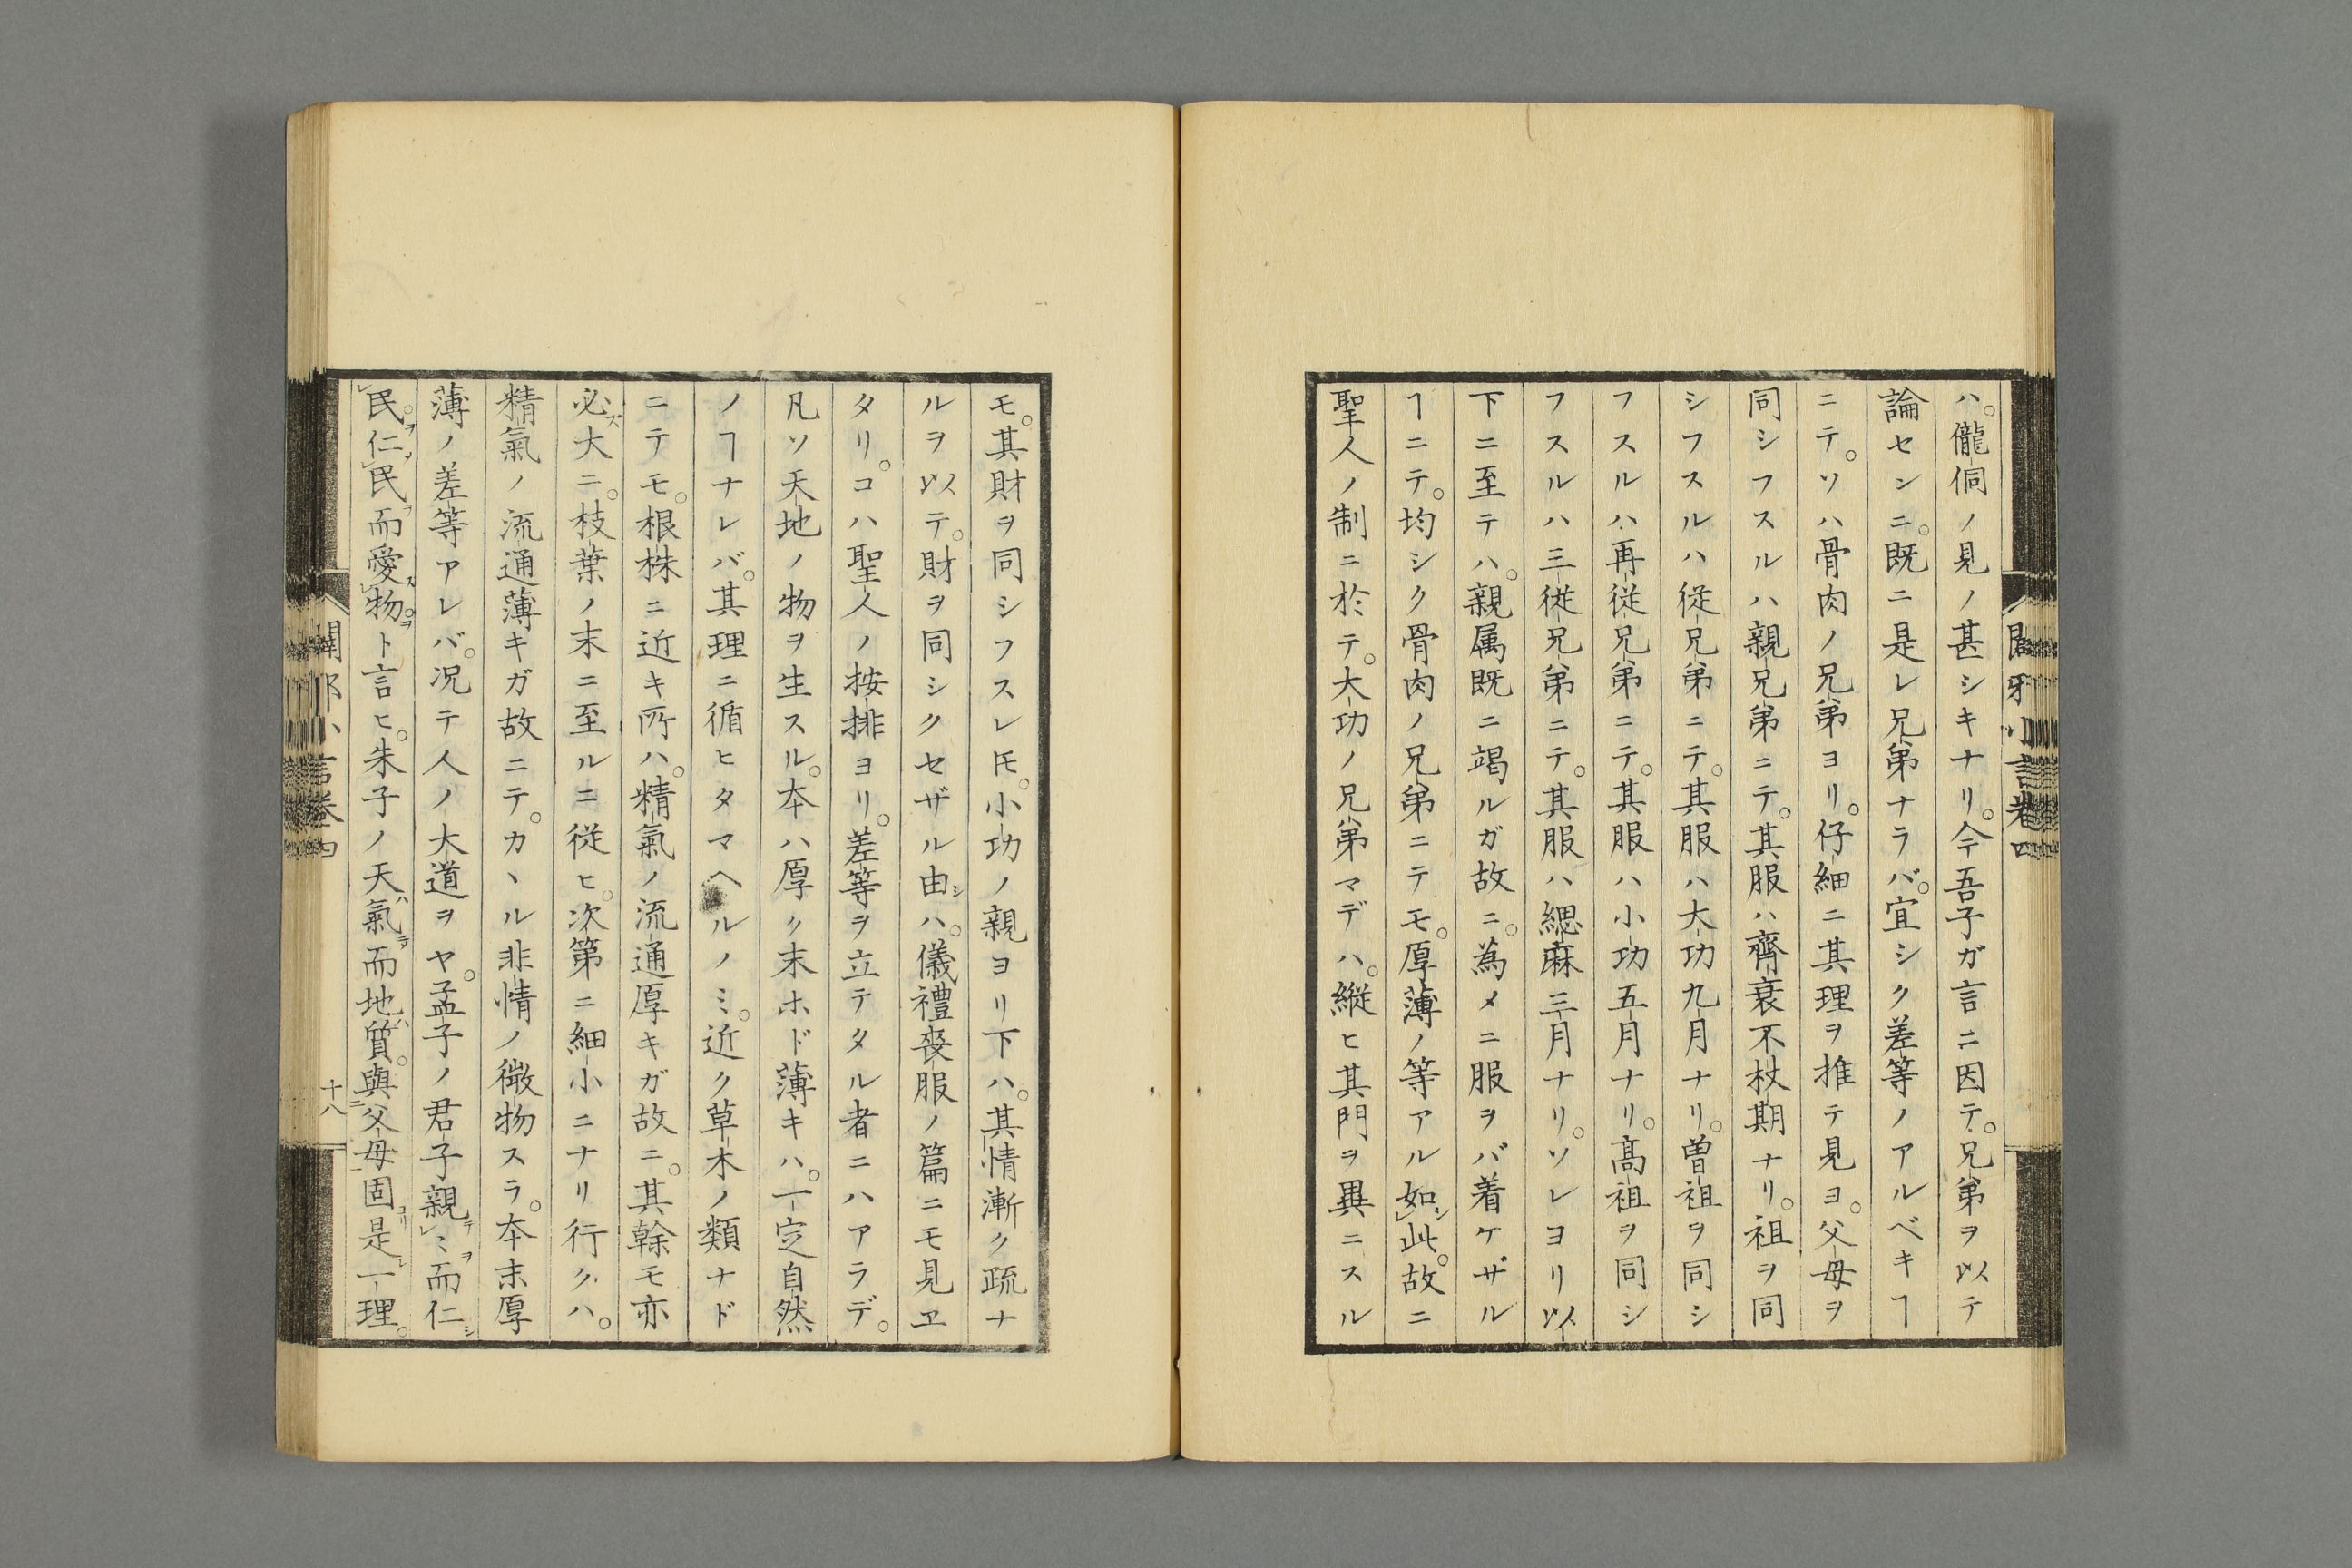 ハ。儱侗ノ見ノ甚シキナリ。今吾子ガ言ニ因テ。兄弟ヲ以テ
論センニ。既ニ是レ兄弟ナラバ。宜シク差等ノアルベキヿ
ニテ。ソハ骨肉ノ兄弟ヨリ。仔細ニ其理ヲ推テ見ヨ。父母ヲ
同シフスルハ親兄弟ニテ。其服ハ齊衰不杖期ナリ。祖ヲ同
シフスルハ従兄弟ニテ。其服ハ大功九月ナリ。曽祖ヲ同シ
フスルハ再従兄弟ニテ。其服ハ小功五月ナリ。髙祖ヲ同シ
フスルハ三従兄弟ニテ。其服ハ緦麻三月ナリ。ソレヨリ以
下ニ至テハ。親属既ニ竭ルガ故ニ。為メニ服ヲバ着ケザル
ヿニテ。均シク骨肉ノ兄弟ニテモ。厚薄ノ等アル如シレ此。故ニ
聖人ノ制ニ於テ。大功ノ兄弟マデハ。縦ヒ其門ヲ異ニスル
モ。其財ヲ同シフスレ𪜈。小功ノ親ヨリ下ハ。其情漸ク疏ナ
ルヲ以テ。財ヲ同シクセザル由シハ。儀禮喪服ノ篇ニモ見ヱ
タリ。コハ聖人ノ按排ヨリ。差等ヲ立テタル者ニハアラデ。
凡ソ天地ノ物ヲ生スル。本ハ厚ク末ホド薄キハ。一定自然
ノヿナレバ。其理ニ循ヒタマヘルノミ。近ク草木ノ類ナド
ニテモ。根株ニ近キ所ハ。精氣ノ流通厚キガ故ニ。其幹モ亦
必ズ大ニ。枝葉ノ末ニ至ルニ従ヒ。次第ニ細小ニナリ行クハ。
精氣ノ流通薄キガ故ニテ。カヽル非情ノ微物スラ。本末厚
薄ノ差等アレバ。况テ人ノ大道ヲヤ。孟子ノ君子親テレミヲ而仁シ
レ民ヲ。仁メレ民ヲ而愛スレ物ヲ。ト言ヒ。朱子ノ天ハ氣ラ而地ハ質。與二父母一固ヨリ是レ一理。
闢邪小言巻四
十八
闢邪小言巻四